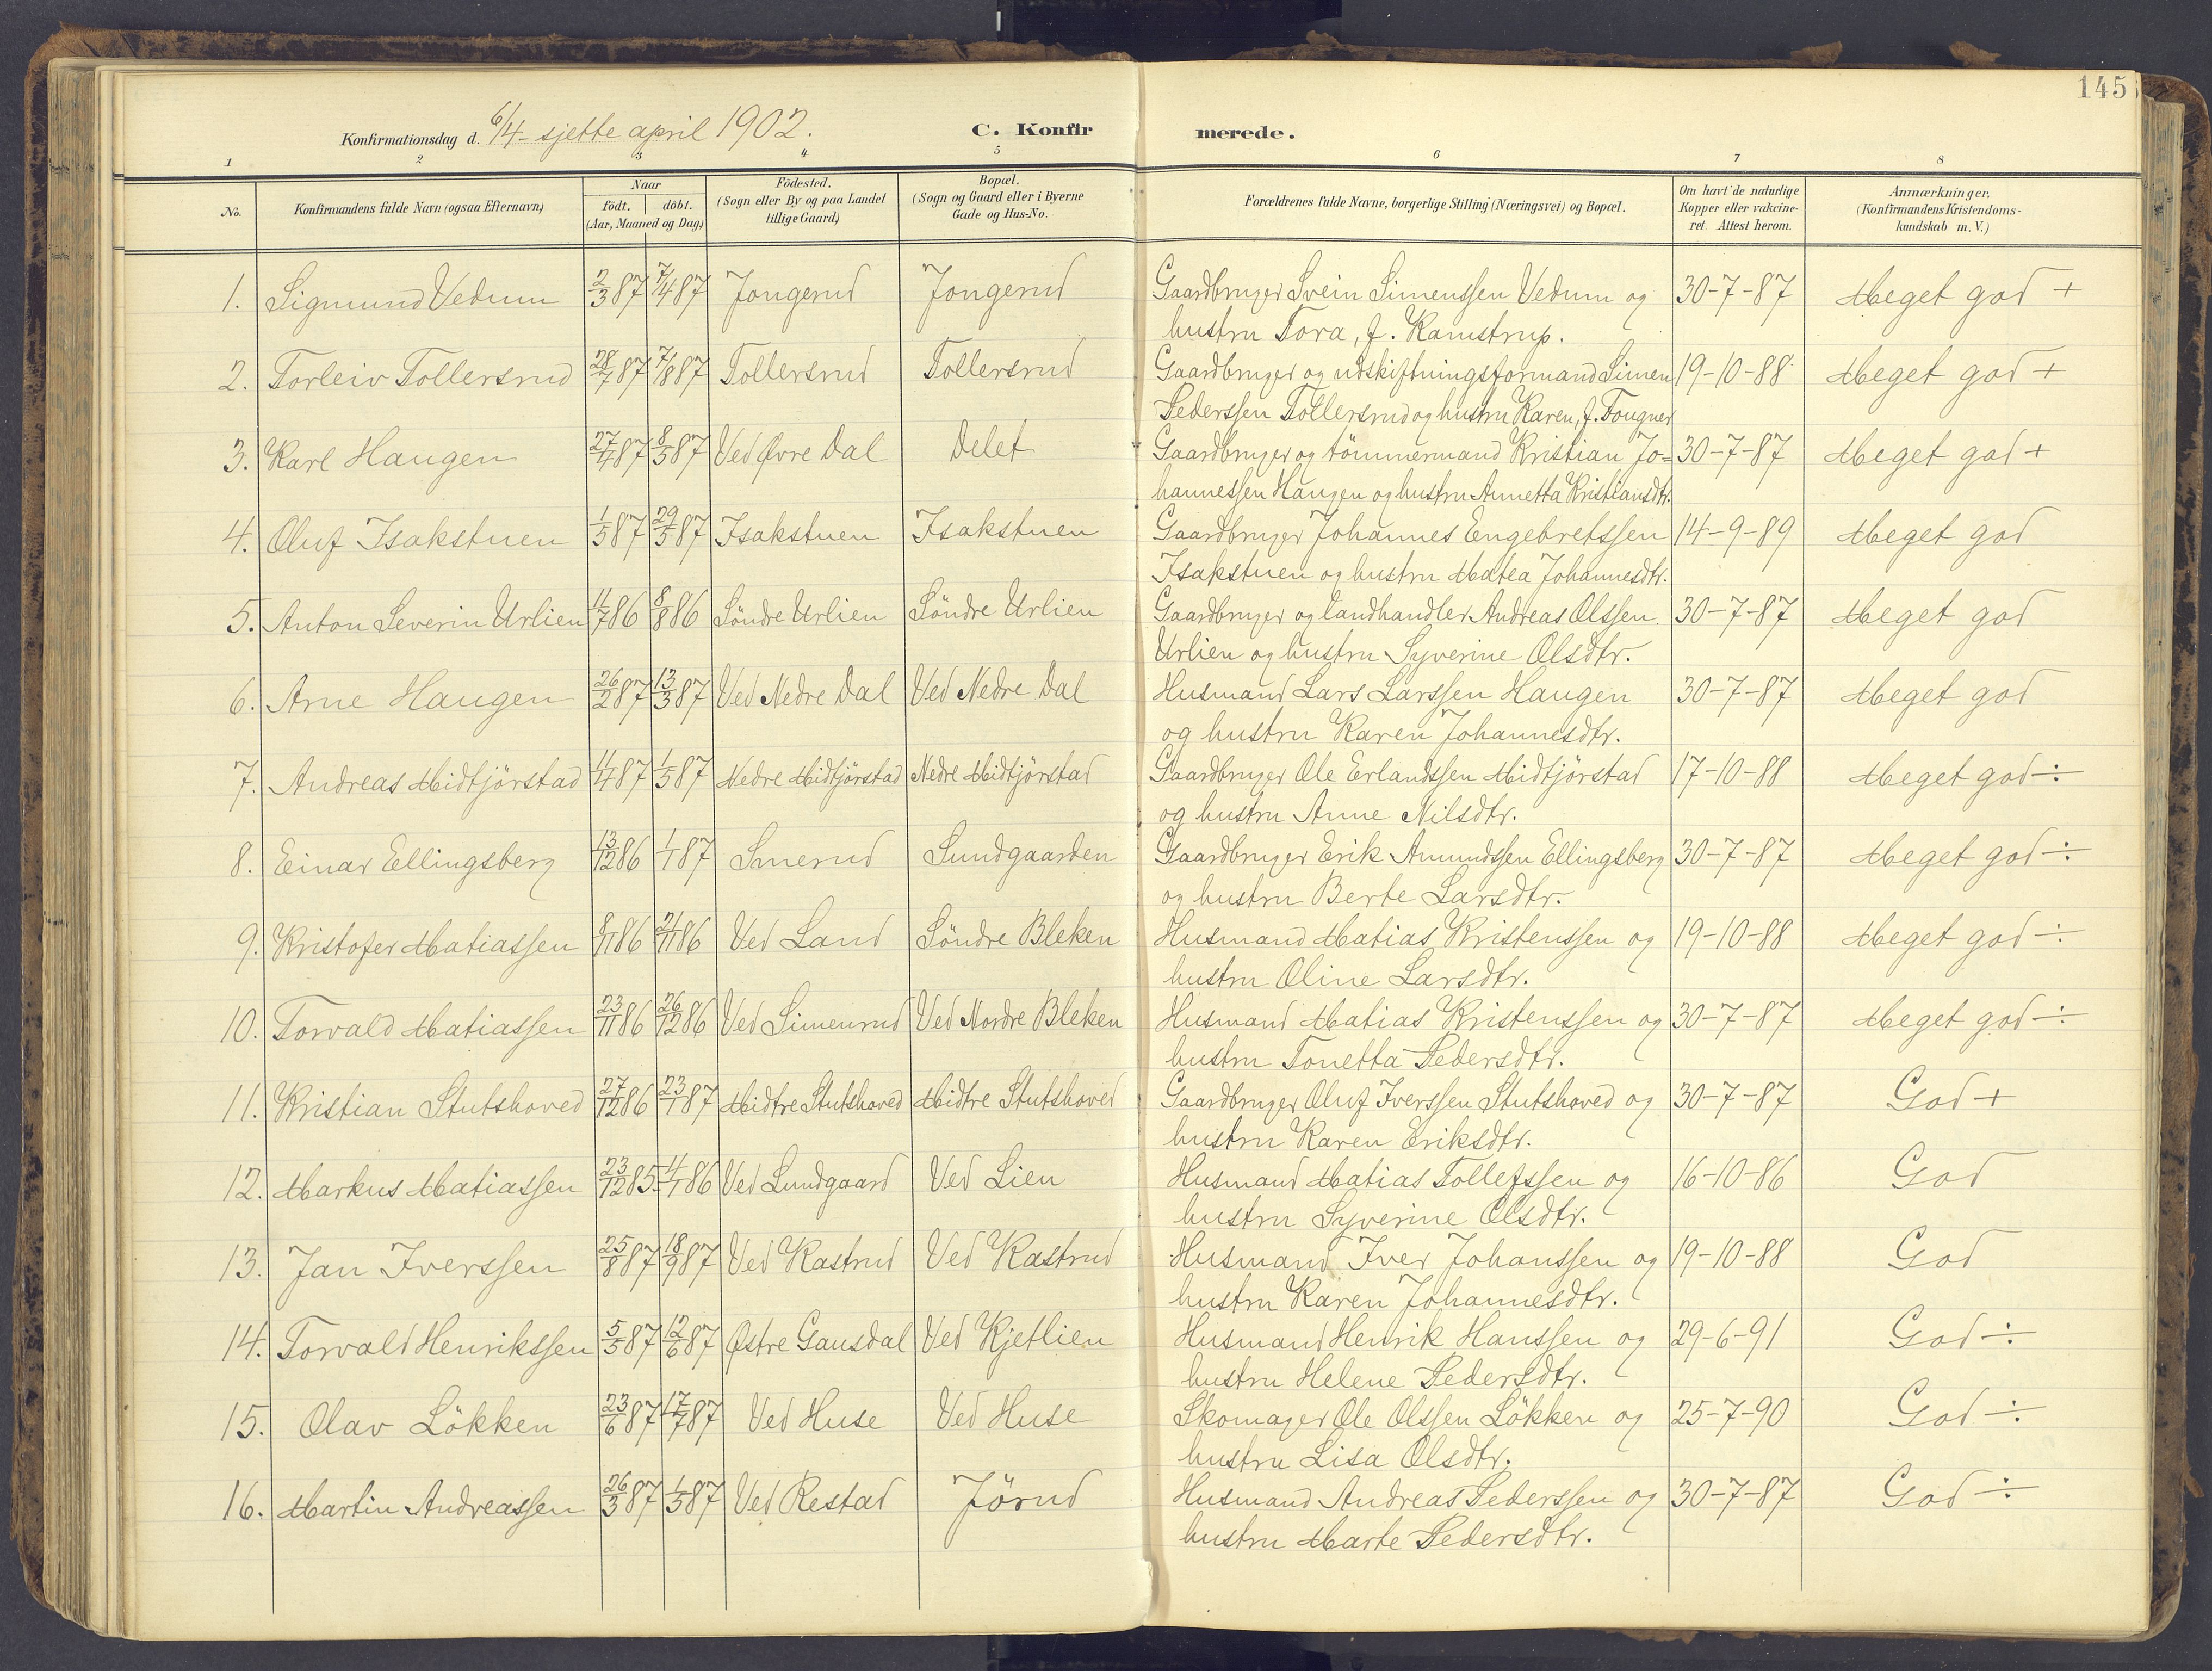 145
Konfirmationsdag d. 6/4 - sjette april 1902. C. Konfir merede.
1 2 3 4 5 6 7 8
No. Konfirmandens fulde Navn (ogsaa Efternavn) Naar födt. döbt. (Aar, Maaned og Dag.) Födested. (Sogn eller By og paa Landet tillige Gaard) Bopæl. (Sogn og Gaard eller i Byerne Gade og Hus-No. Forældrenes fulde Navne, borgerlige Stilling (Næringsvei) og Bopæl. Om havt de naturlige Kopper eller vakcineret. Attest herom. Anmærkninger. (Konfirmandens Kristendomskundskab m. V.)
1. Sigmund Vedum 2/3 87 7/4 87 Jongerud Jongerud Gaardbruger Svein Simenssen Vedum og 30-7-87 Meget god +
hustru Tora, f. Ramstrup.
2. Torleiv Tollersrud 28/7 87 7/8 87 Tollersrud Tollersrud Gaardbruger og udskiftningsformand Simen 19-10-88 Meget god +
Pederssen Tollersrud og hustru Karen, f. Fougner
3. Karl Haugen 27/4 87 8/5 87 Ved Øvre Dal Delet Gaardbruger og tömmermand Kristian Jo= 30-7-87 Meget god +
hannessen Haugen og hustru Annetta Kristiansdtr.
4. Oluf Isakstuen 1/5 87 29/5 87 Isakstuen Isakstuen Gaardbruger Johannes Engebretssen 14-9-89 Meget god
Isakstuen og hustru Matea Johannesdtr.
5. Anton Severin Urlien 11/7 86 8/8 86 Söndre Urlien Söndre Urlien Gaardbruger og landhandler Andreas Olssen 30-7-87 Meget god
Urlien og hustru Syverine Olsdtr.
6. Arne Haugen 26/2 87 13/3 87 Ved Nedre Dal Ved Nedre Dal Husmand Lars Larssen Haugen 30-7-87 Meget god
og hustru Karen Johannesdtr.
7. Andreas Midtjörstad 11/4 87 1/5 87 Nedre Midtjörstad Nedre Midtjörstad Gaardbruger Ole Erlandssen Midtjörstad 17-10-88 Meget god ÷
og hustru Anne Nilsdtr.
8. Einar Ellingsberg 13/12 86 1/1 87 Smerud Sundgaarden Gaardbruger Erik Amundssen Ellingsberg 30-7-87 Meget god ÷
og hustru Berte Larsdtr.
9. Kristofer Matiassen 8/11 86 21/11 86 Ved Land Söndre Bleken Husmand Matias Kristenssen og 19-10-88 Meget god ÷
hustru Oline Larsdtr.
10. Torvald Matiassen 23/11 86 26/12 86 Ved Simenrud Ved Nordre Bleken Husmand Matias Kristenssen og 30-7-87 Meget god ÷
hustru Tonetta Pedersdtr.
11. Kristian Stutshoved 27/12 86 23/1 87 Midtre Stutshoved Midtre Stutshoved Gaardbruger Oluf Iverssen Stutshoved og 30-7-87 God +
hustru Karen Eriksdtr.
12. Markus Matiassen 23/12 85 4/1 86 Ved Lundgaard Ved Lien Husmand Matias Tollefssen og 16-10-86 God
hustru Syverine Olsdtr.
13. Jan Iverssen 25/8 87 18/9 87 Ved Kastrud Ved Kastrud Husmand Iver Johanssen og 19-10-88 God
hustru Karen Johannesdtr.
14. Torvald Henrikssen 5/5 87 12/6 87 Østre Gausdal Ved Kjetlien Husmand Henrik Hanssen og 29-6-91 God ÷
hustru Helene Pedersdtr.
15. Olav Lökken 23/6 87 17/7 87 Ved Huse Ved Huse Skomager Ole Olssen Lökken og 25-7-90 God ÷
hustru Lisa Olsdtr.
16. Martin Andreassen 26/3 87 1/5 87 Ved Restad Jörud Husmand Andreas Pederssen og 30-7-87 God ÷
hustru Marte Pedersdtr.